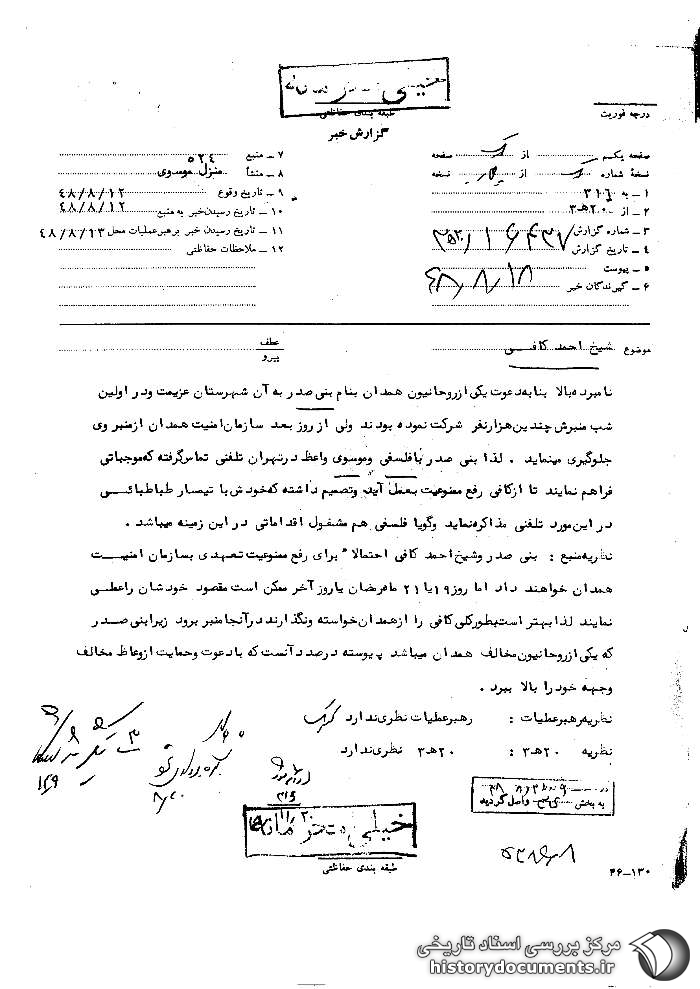 خیلی محرمانه
طبقه بندی حفاظتی
درجه فوریت
گزارش خبر
صفحه یکم از یک صفحه
نسخهٔ شماره یک از نسخه
۱ ـ به ۳۱۶
۲ ـ از ۲۰هـ۳
۳ ـ شماره گزارش ۱۶۴۳۷/
۴ ـ تاریخ گزارش ۴۸/۸/۱۸
۵ ـ پیوست
۶ ـ گیرندگان خبر
۷ ـ منبع ۵۲۴
۸ ـ منشأ منزل موسوی
۹ ـ تاریخ وقوع ۴۸/۸/۱۲
۱۰ ـ تاریخ رسیدن خبر به منبع ۴۸/۸/۱۲
۱۱ ـ تاریخ رسیدن خبر برهبر عملیات محل ۴۸/۸/۱۳
۱۲ ـ ملاحظات حفاظتی
موضوع شیخ احمد کافی
عطف
پیرو
نامبرده بالا بنا به دعوت یکی از روحانیون همدان بنام بنی صدر به آن شهرستان عزیمت و در اولین
شب منبرش چندین هزار نفر شرکت نموده بودند ولی از روز بعد سازمان امنیت همدان از منبر وی
جلوگیری مینماید . لذا بنی صدر با فلسفی و موسوی واعظ در تهران تلفنی تماس گرفته که موجباتی
فراهم نمایند تا از کافی رفع ممنوعیت بعمل آید و تصمیم داشته که خودش با تیسار طباطبائی
در این مورد تلفنی مذاکره نماید و گویا فلسفی هم مشغول اقداماتی در این زمینه میباشد .
نظریه منبع : بنی صدر و شیخ احمد کافی احتمالا" برای رفع ممنوعیت تعهدی بسازمان امنیت
همدان خواهند داد اما روز ۱۹ یا ۲۱ ماه رمضان یا روز آخر ممکن است مقصود خودشان را عطی
نمایند لذا بهتر است بطور کلی کافی را از همدان خواسته و نگذارند در آنجا منبر برود زیرا بنی صدر
که یکی از روحانیون مخالف همدان میباشد پیوسته درصدد آنست که با دعوت و حمایت از وعاظ مخالف
وجهه خود را بالا ببرد .
نظریه رهبر عملیات : رهبر عملیات نظری ندارد
نظریه ۲۰هـ۳ : ۲۰هـ۳ نظری ندارد
به بخش واصل گردید
۳۱۶
خیلی محرمانه
طبقه بندی حفاظتی
۳۶-۱۳۰
مرکز بررسی اسناد تاریخی
historydocuments.ir